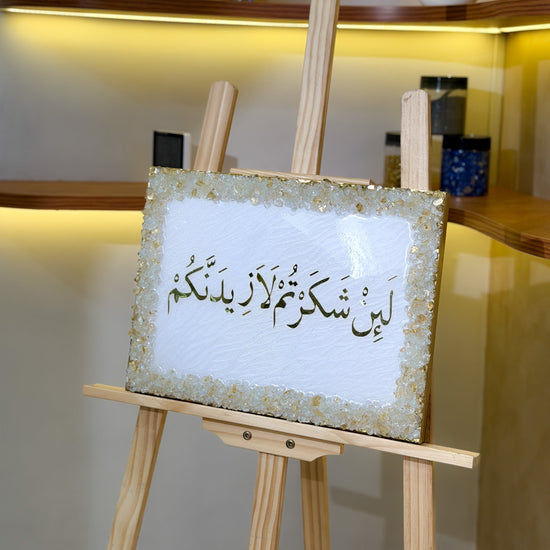 لَئِنْ شَكَرْتُمْ لَاَزِيدَنَّكُمْ